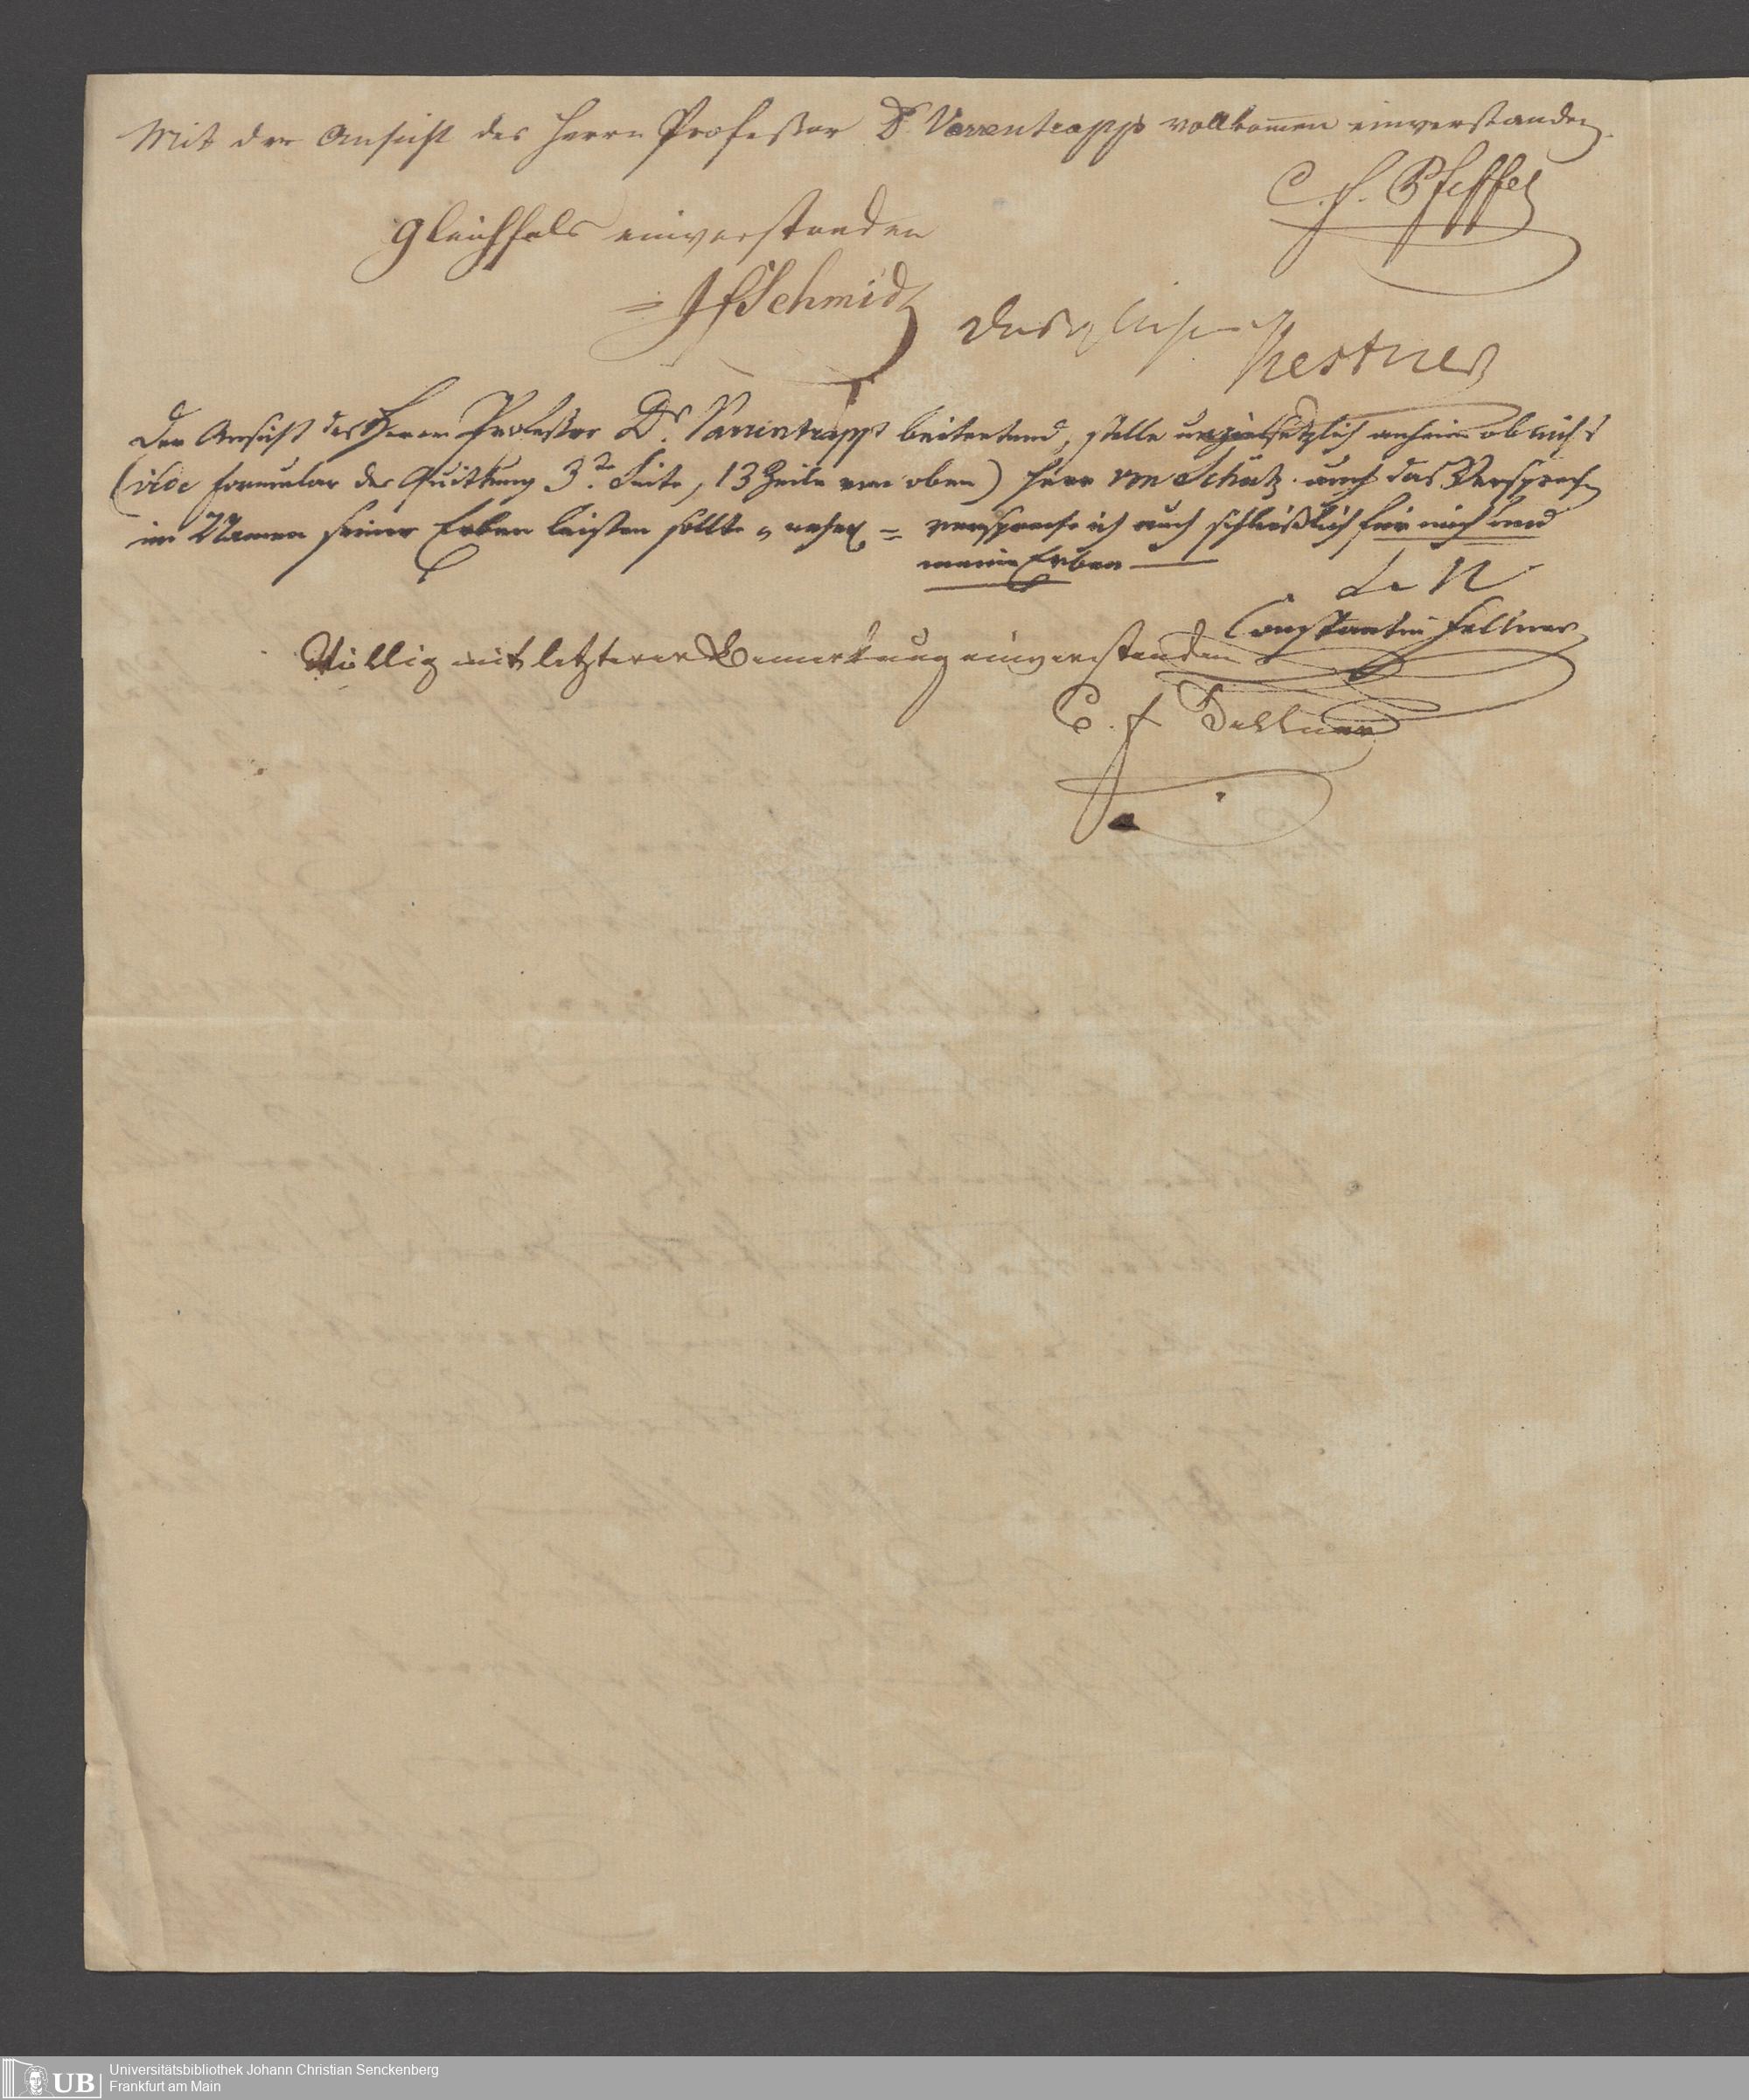 Mit der Ansicht des Herrn Profeßor Dr. Varrentrapp's vollkomen einverstanden.
C. F. Pfeffel
gleichfals einverstanden
JfSchmidt
Desgleichen
Kestner
Der Ansicht des Herrn Profeßor Dr. Varrentrapp's beitretend, stelle anheim ob nicht
(vide formular der Quittung 3te Seite, 13 Zeile von oben) Herr von Schütz auch das Versprechen
im Namen seiner Erben leisten sollte = verspreche ich auch schließlich für mich und
meine Erben
Constantin Fellner
Völlig mit letzterer Bemerkung einverstanden
C. F. Fellner
UB
Universitätsbibliothek Johann Christian Senckenberg
Frankfurt am Main